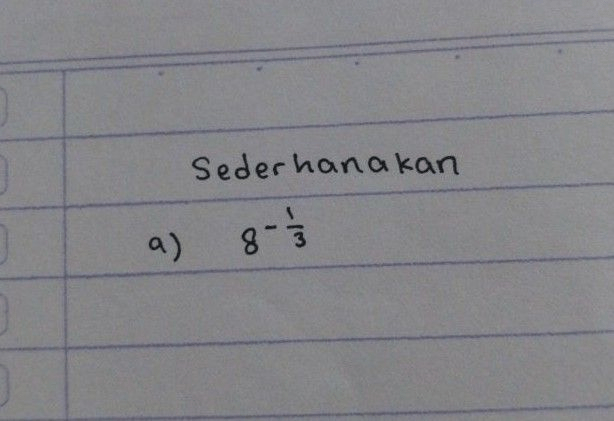 Sederhanakan
a) 8^{-\frac{1}{3}}